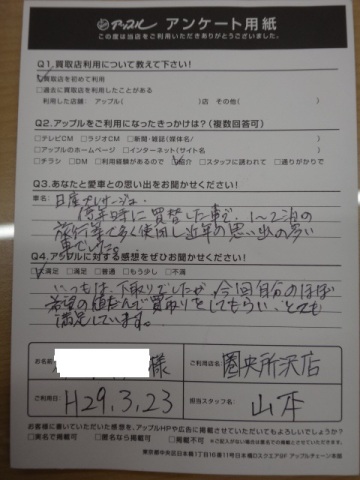 アップル アンケート用紙
この度は当店をご利用いただきありがとうございました。
Q1.買取店利用について教えて下さい!
買取店を初めて利用
□過去に買取店を利用したことがある
利用した店舗: アップル( )店 その他( )
Q2.アップルをご利用になったきっかけは?(複数回答可)
□テレビCM □ラジオCM □新聞・雑誌(媒体名/ )
□アップルのホームページ □インターネット(サイト名 )
□チラシ □DM □利用経験があるので 紹介 □スタッフに誘われて □通りがかりで
Q3.あなたと愛車との思い出をお聞かせください!
車名: 日産
に買替した車で、1〜2泊の
旅行等で多く使用し近年の思い出の多い
車でした。
Q4.アップルに対する感想をぜひお聞かせください!
大満足 □満足 □普通 □もう少し □不満
いつもは、下取りでしたが、今回自分のほぼ
希望の値だんで買取りをしてもらい、とても
満足しています。
お名前 様 ご利用店名: 圏央所沢店
ご利用日: H29.3.23 担当スタッフ名: 山本
お客様に書いていただいた感想を、アップルHPや広告に掲載させていただいてもよろしいでしょうか?
□実名で掲載可 □匿名なら掲載可 □掲載不可
東京都中央区日本橋1丁目16番11号日本橋Dスクエア8F アップルチェーン本部